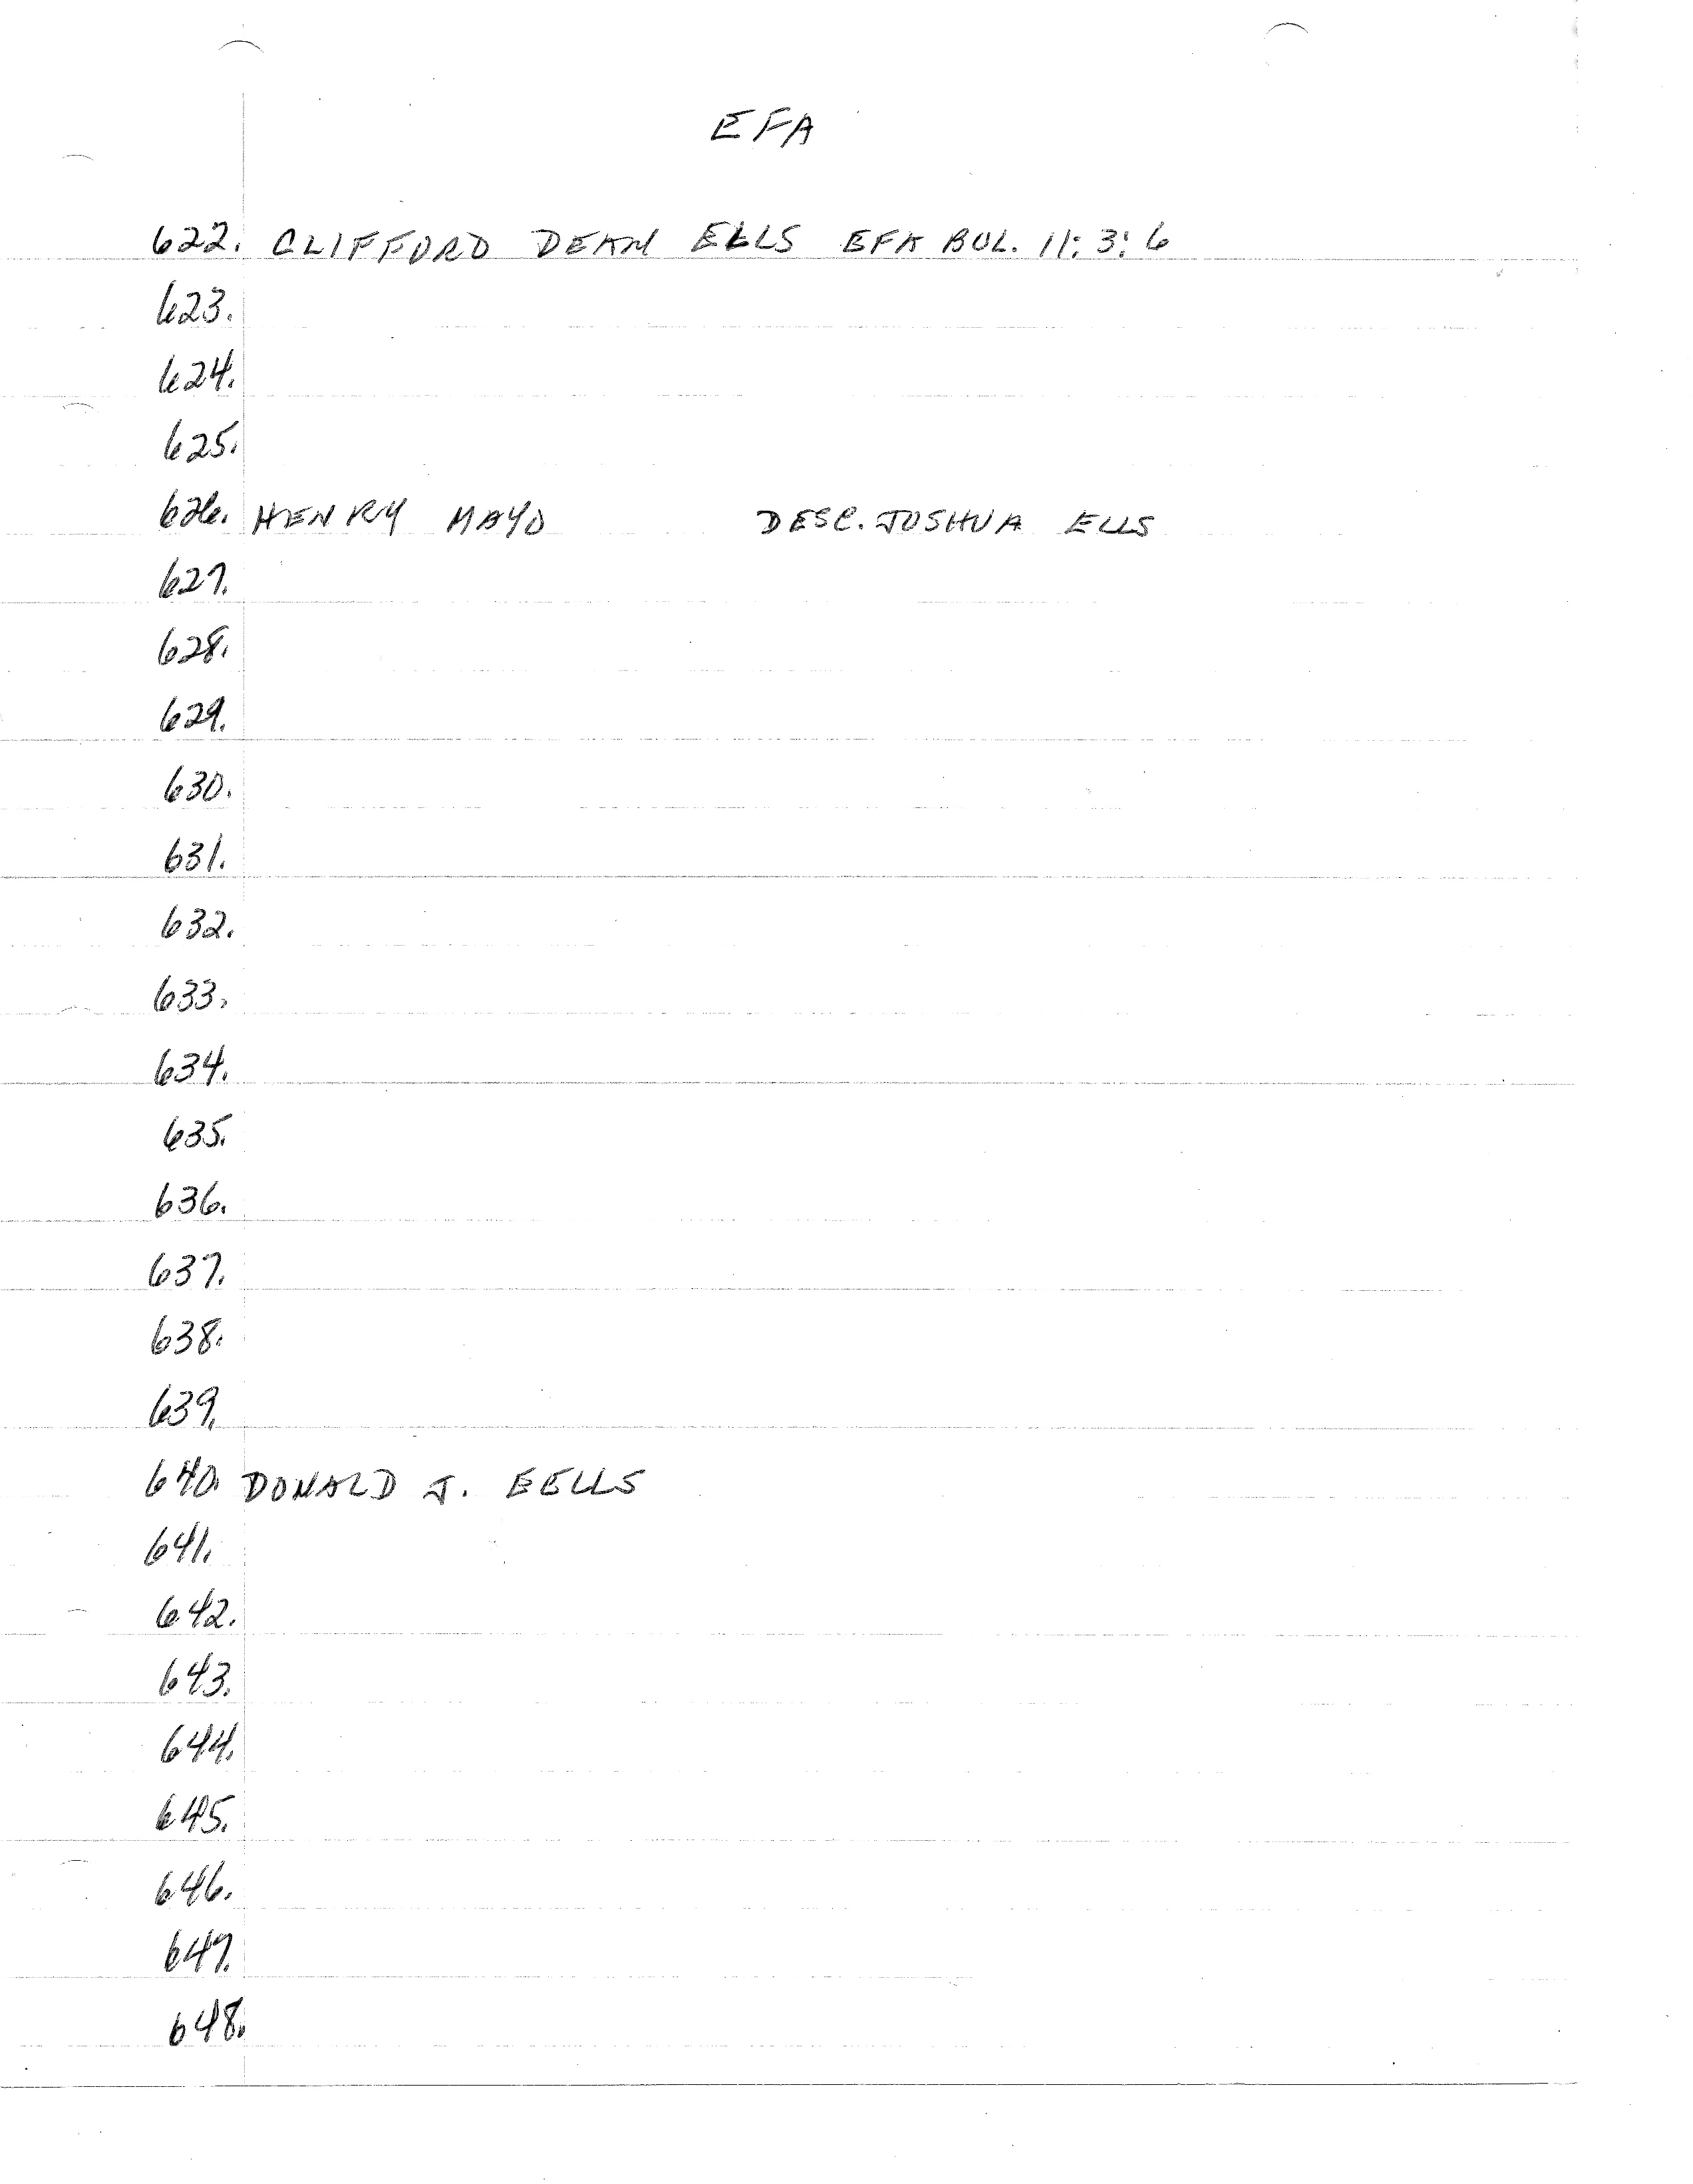 EFA
622. CLIFFORD DEAN EELLS EFA BUL. 11:3:6
623.
624.
625.
626. HENRY MAYO DESC. JOSHUA ELLS
627.
628.
629.
630.
631.
632.
633.
634.
635.
636.
637.
638.
639.
640. DONALD J. EELLS
641.
642.
643.
644.
645.
646.
647.
648.